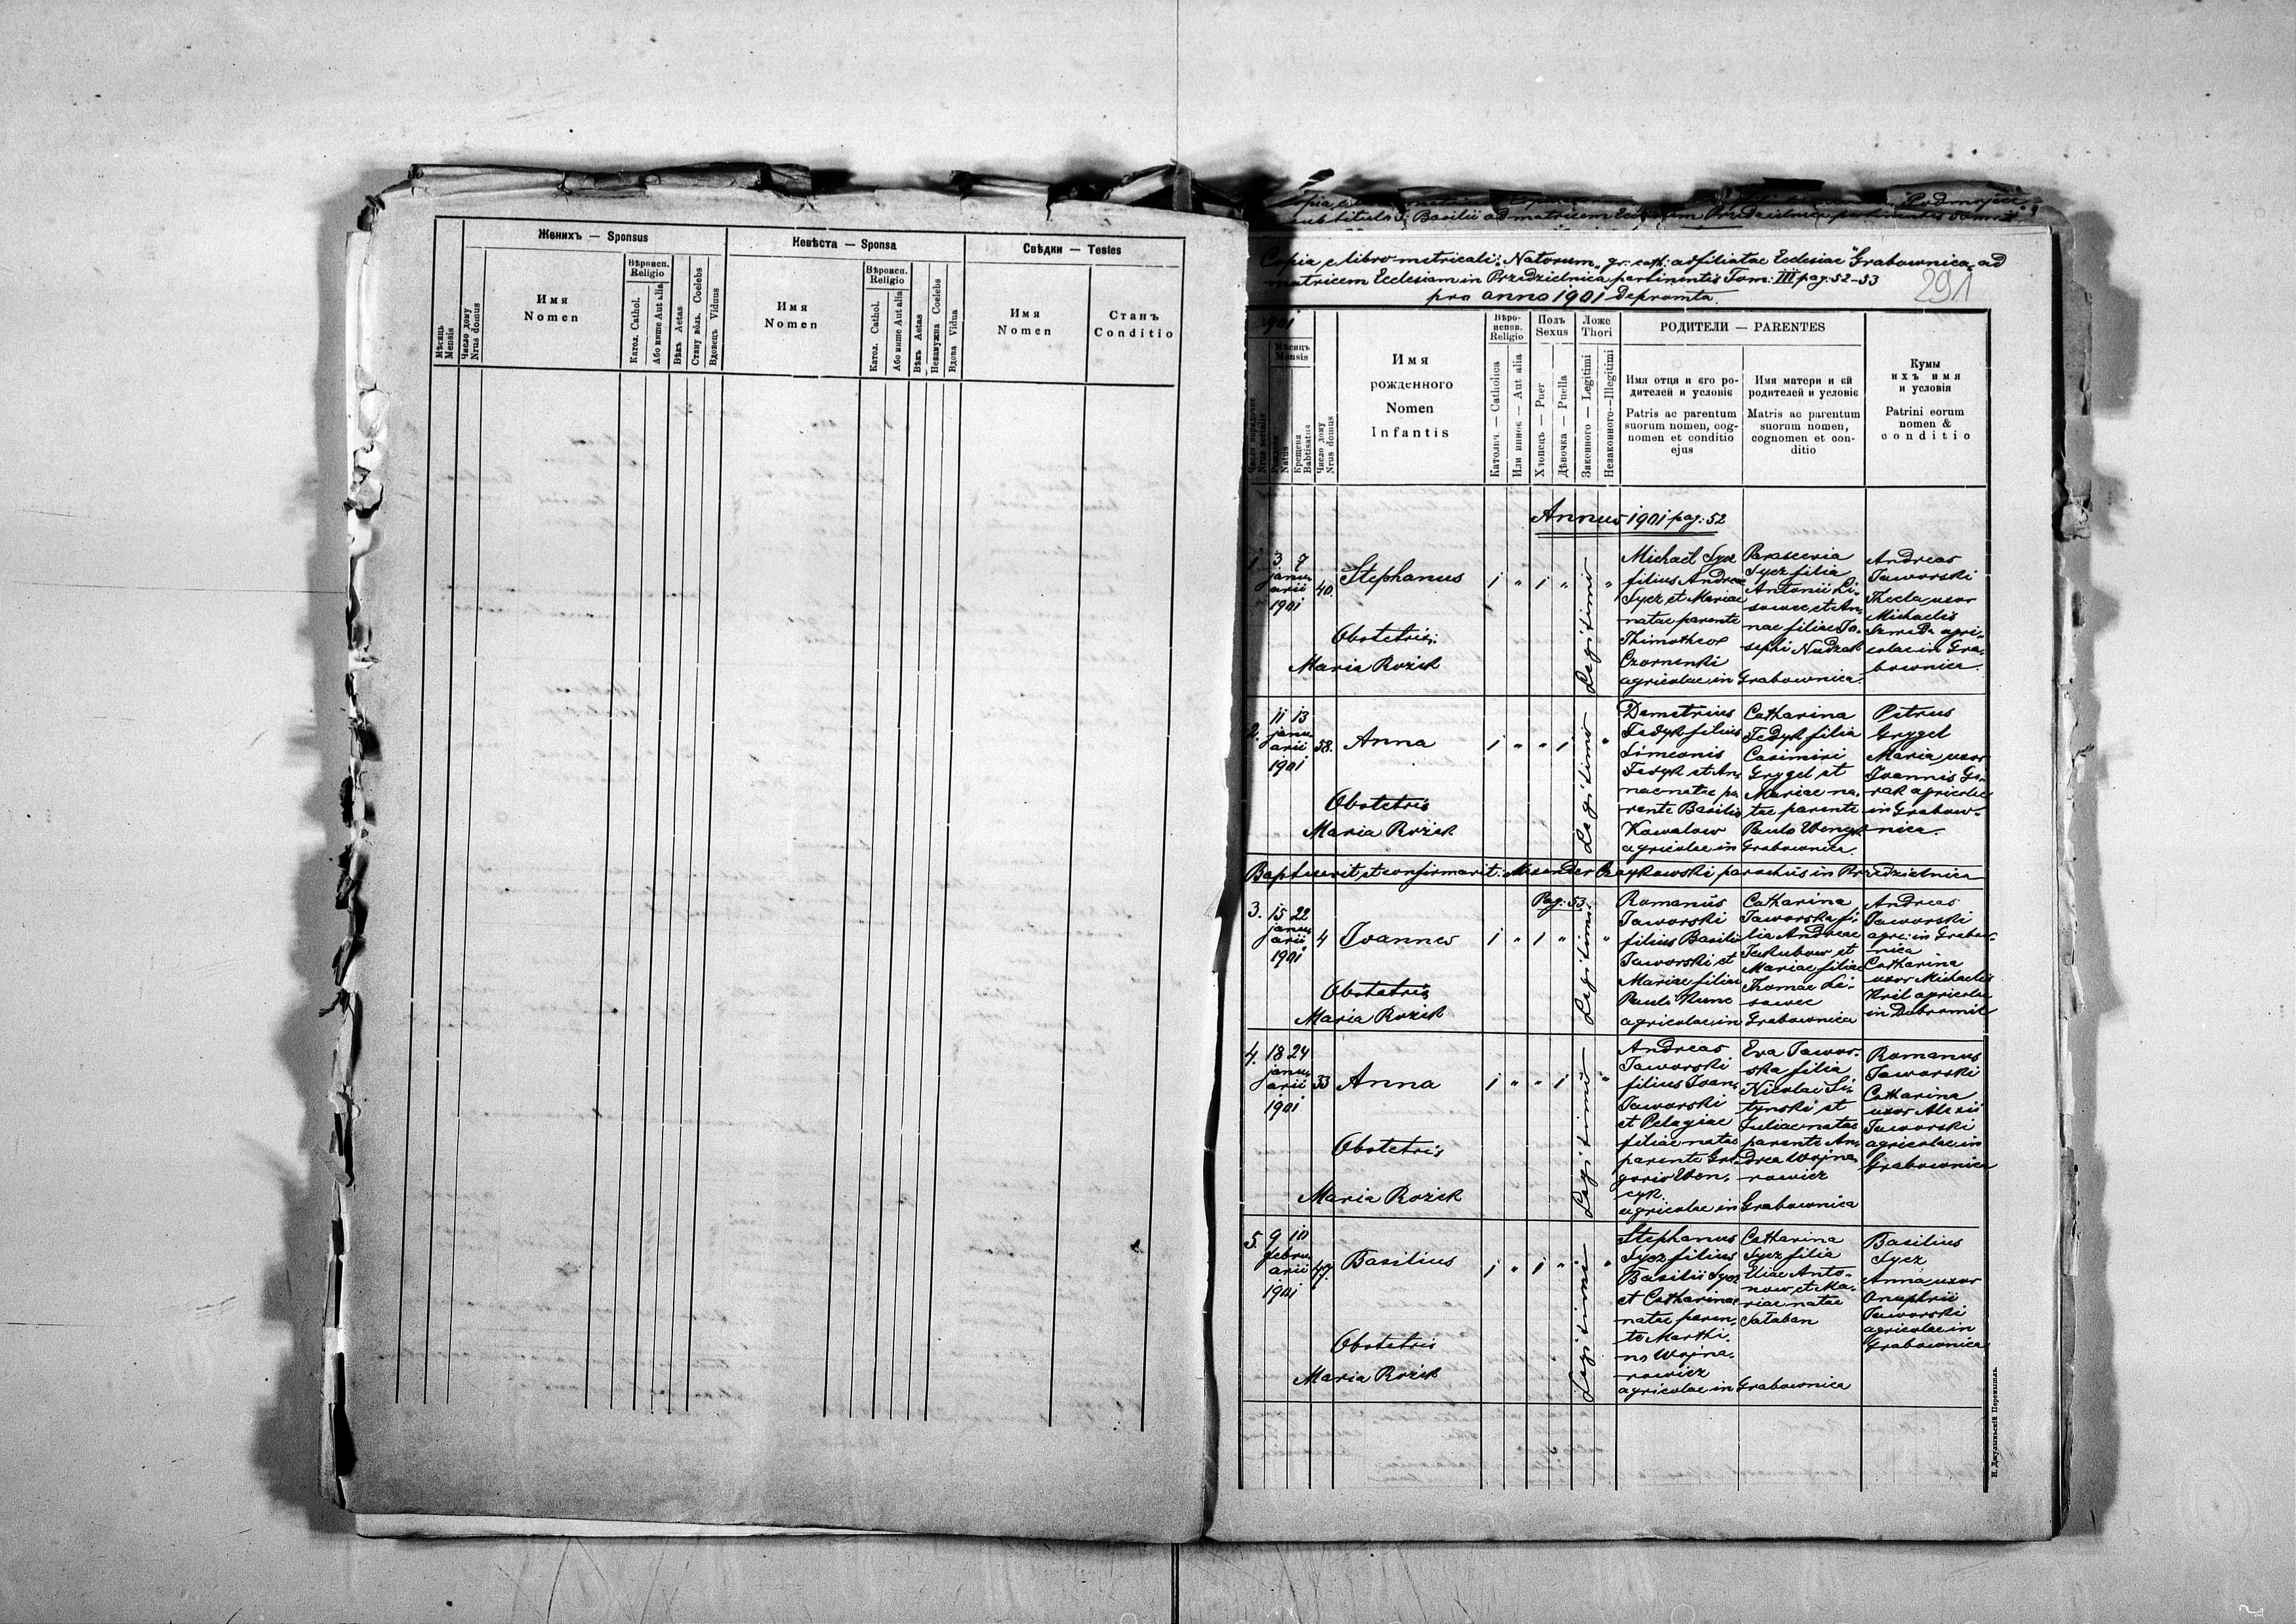 Женихъ — Sponsus
Невѣста — Sponsa
Свѣдки — Testes
Мѣсяць
Mensis
Число дому
Nrus domus
Имя
Nomen
Вѣроисп.
Religio
Катол. Cathol.
Або инше Aut alia
Вѣкъ Aetas
Стану вôль. Coelebs
Вдовець Viduus
Имя
Nomen
Вѣроисп.
Religio
Катол. Cathol.
Або инше Aut alia
Вѣкъ Aetas
Незамужна Coelebs
Вдова Vidua
Имя
Nomen
Станъ
Conditio
Copia e libro metricali: Natorum, gr: cath: adfiliatae Ecclesiae "Grabownica" ad
matricem Ecclesiam in Przedzielnica pertinentis Tom: III pag: 52-53
pro anno 1901 deprompta.
291
1901
Число порядочне
Nrus serialis
Мѣсяць
Mensis
Рождень
Natus
Крещена
Babtisatus
Число дому
Nrus domus
Имя
рожденного
Nomen
Infantis
Вѣро-
испов.
Religio
Католич. — Catholica
Или инное — Aut alia
Полъ
Sexus
Хлопець — Puer
Дѣвочка — Puella
Ложе
Thori
Законного — Legitimi
Незаконного — Illegitimi
РОДИТЕЛИ — PARENTES
Имя отця и єго ро-
дителей и условіє
Patris ac parentum
suorum nomen, cog-
nomen et conditio
ejus
Имя матери и єй
родителей и условіє
Matris ac parentum
suorum nomen,
cognomen et con-
ditio
Кумы
ихъ имя
и условія
Patrini eorum
nomen &
conditio
Annus 1901 pag: 52
1 3 7
janu-
arii
1901
40.
Stephanus
Obstetrix:
Maria Rożek
1 " 1 "
Legitimi
"
Michaël Sycz
filius Andreae
Sycz et Mariae
natae parente
Thimotheo
Czornenki
agricolae in Grabownica.
Parascevia
Sycz filia
Antonii Li-
sowec et An-
nae filiae Jo-
sephi Nudzak
Andreas
Jaworski
Thecla uxor
Michaelis
agri-
colae in Gra-
bownica.
2. 11 13
janu-
arii
1901
58.
Anna
Obstetrix
Maria Rożek
1 " " 1
Legitimi
"
Demetrius
Fedyk filius
Simeonis
Fedyk et An-
nae natae pa-
rente Basilio
Kowalow
agricolae in Grabownica.
Catharina
Fedyk filia
Casimiri
Grygel et
Mariae na-
tae parente
Paulo
Petrus
Grygel
Maria uxor
Joannis Go-
rak agricolae
in Grabow-
nica.
Baptisavit et confirmavit: Alexander parochus in Przedzielnica
Pag: 53
3. 15 22
janu-
arii
1901
4
Joannes
Obstetrix
Maria Rożek
1 " 1 "
Legitimi
"
Romanus
Jaworski
filius Basilii
Jaworski et
Mariae filiae
Pauli
agricolae in Grabownica
Catharina
Jaworska fi-
lia Andreae
Jakubow et
Mariae filiae
Thomae Li-
sowec
Andreas
Jaworski
agr: in Grabow-
nica
Catharina
uxor Michaelis
Kril agricolae
in Dobromil
4. 18 24
janu-
arii
1901
33
Anna
Obstetrix
Maria Rożek
1 " " 1
Legitimi
"
Andreas
Jaworski
filius Joan:
Jaworski
et Pelagiae
filiae natae
parente Gre-
gorio Wen-
cyk.
agricolae in Grabownica
Eva Jawor-
ska filia
Nicolai Li-
tynski et
Juliae natae
parente An-
drea Wojna-
rowicz
Romanus
Jaworski
Catharina
uxor Alexii
Jaworski
agricolae in
Grabownica
5. 9 10
febru-
arii
1901
47.
Basilius
Obstetrix
Maria Rożek
1 " 1 "
Legitimi
"
Stephanus
Sycz filius
Basilii Sycz
et Catharinae
natae paren-
te Marthi-
no Wojna-
rowicz
agricolae in Grabownica
Catharina
Sycz filia
Eliae Anto-
now et Ma-
riae natae
Sataban
Basilius
Sycz
Anna uxor
Onuphrii
Jaworski
agricolae in
Grabownica
Н. Джулыньскій Перемышль.